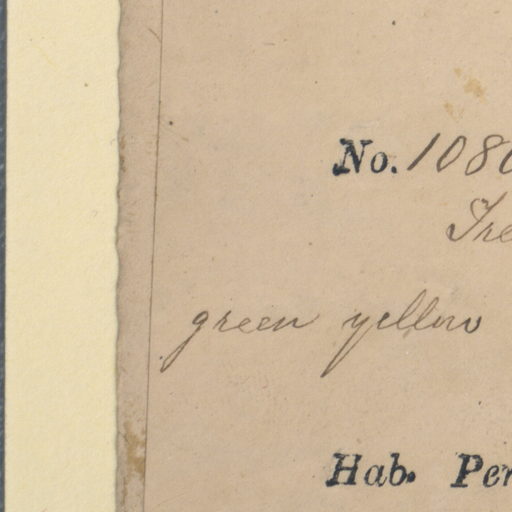 No. 108
Tre
green yellow
Hab. Per